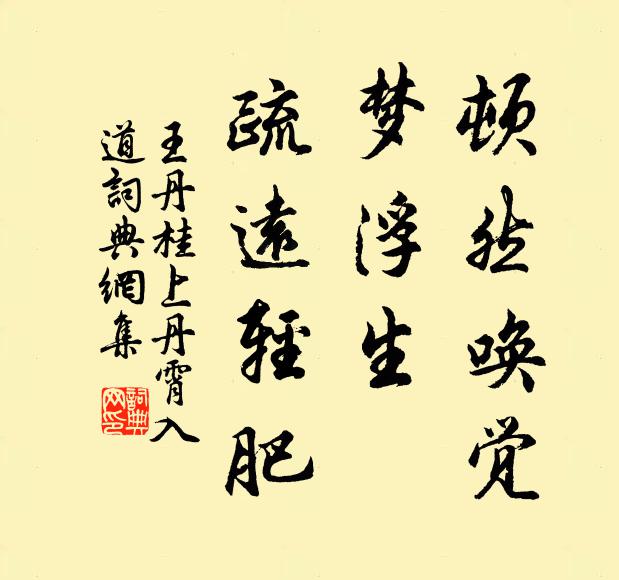 顿然唤觉
梦浮生
疏远轻肥
王丹桂上丹霄入
道词典网集
词典网印